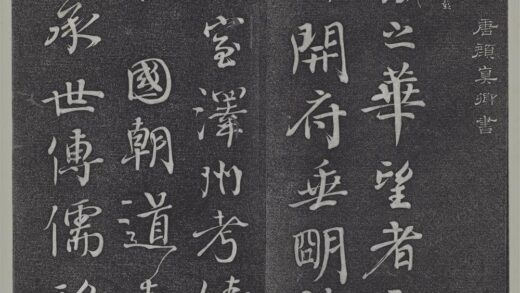 唐顏真卿書
之華望者
開府垂明
室澤州考
國朝道
承世傳儒